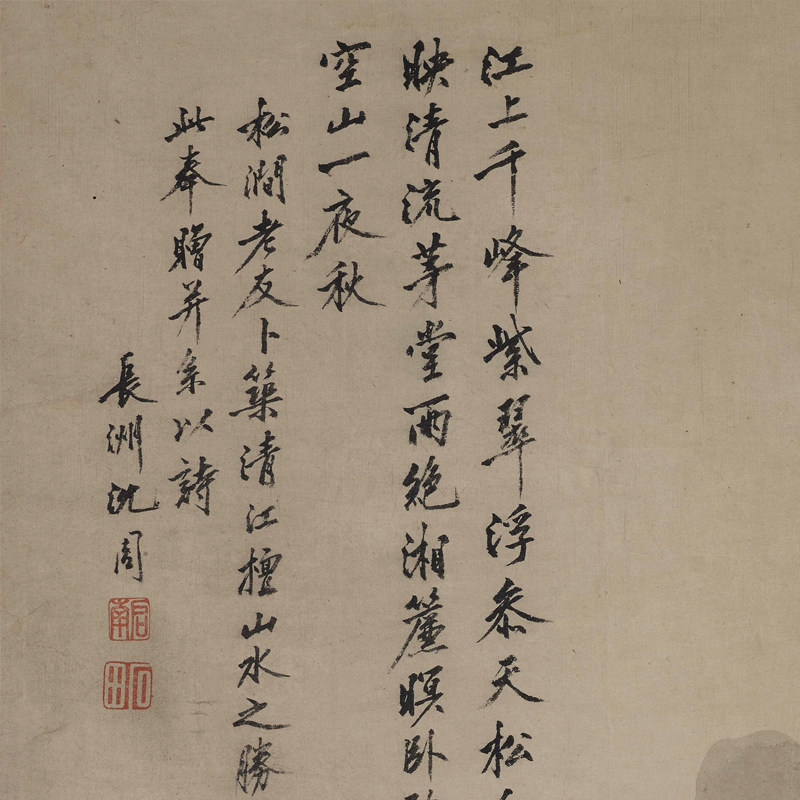 江上千峰紫翠浮參天松
映清流茅堂雨絕湘簾暝臥
空山一夜秋
松澗老友卜築清江擅山水之勝
此奉贈并系以詩
長洲沈周
啟南